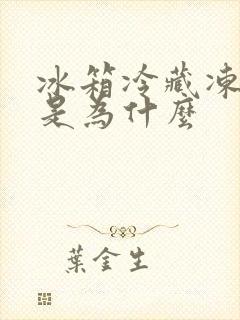 冰箱冷藏凍
是為什麼
葉金生